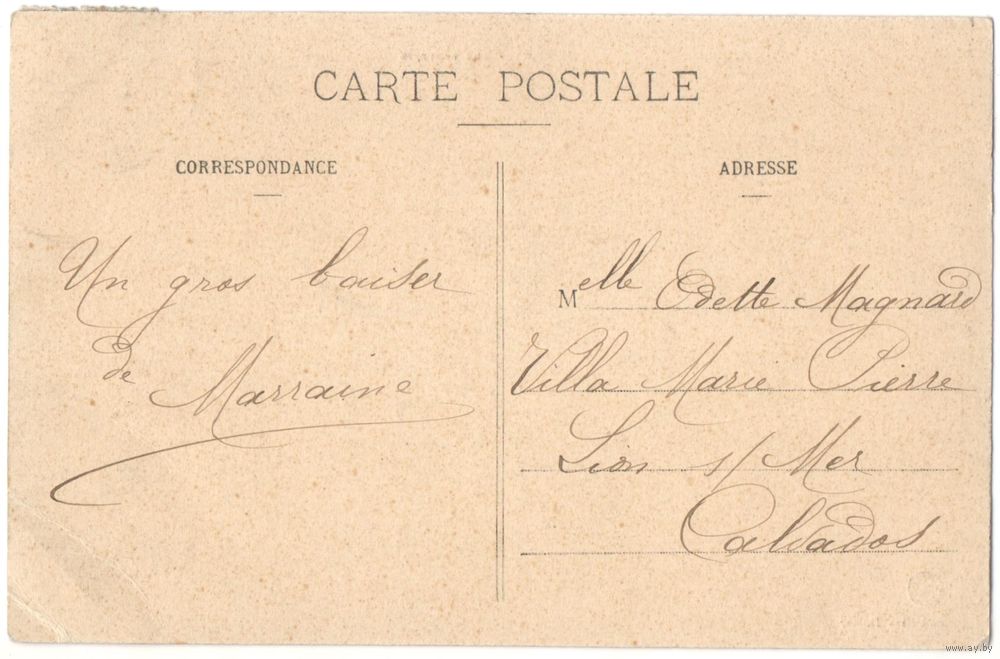 CARTE POSTALE
CORRESPONDANCE
Un gros baiser
de Marraine
ADRESSE
Melle Odette Magnard
Villa Marie Pierre
Lion s/ Mer
Calvados
www.ay.by